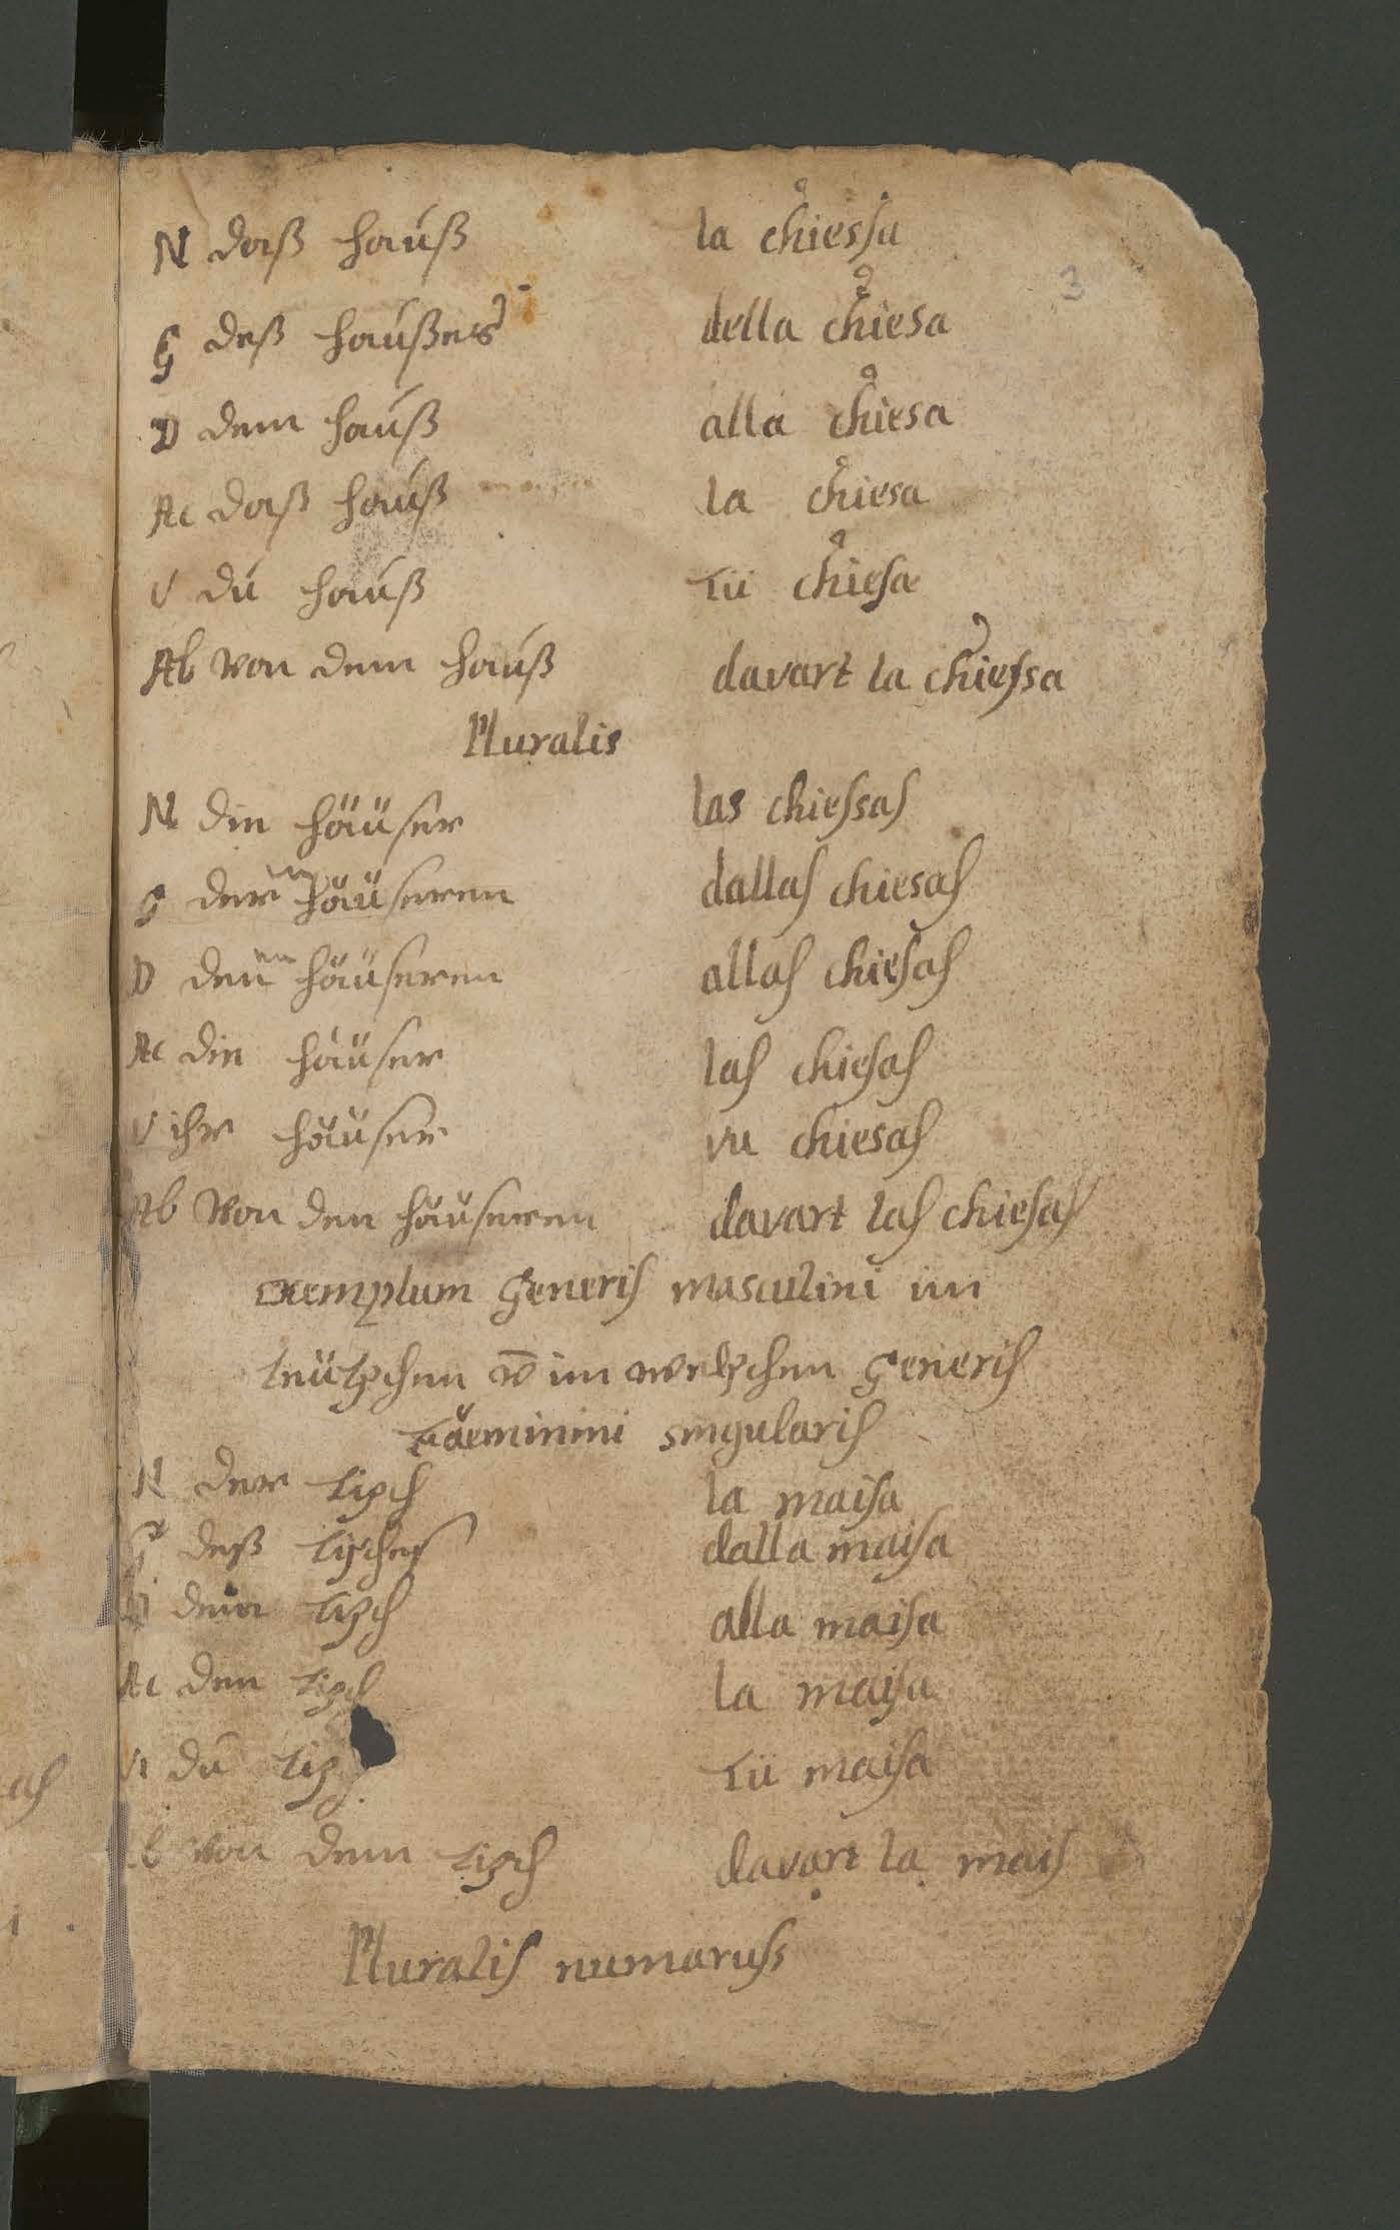 3
N daß hauß la chiessa
G deß haußes della chiesa
D dem hauß alla chiesa
Ac daß hauß la chiesa
V du hauß tü chiesa
Ab von dem hauß davart la chiessa
Pluralis
N die häüser las chiessas
G deren häüseren dallas chiesas
D denen häüseren allas chiesas
Ac die häüser las chiesas
V ihr häüser vu chiesas
Ab von den häüseren davart las chiesas
exemplum generis masculini im
teütschen v̄ im welschen generis
faeminini singularis
N der tisch la maisa
G deß tisches dalla maisa
D dem tisch alla maisa
Ac den tisch la maisa
V du tisch tü maisa
Ab von dem tisch davart la mais
Pluralis numaruss